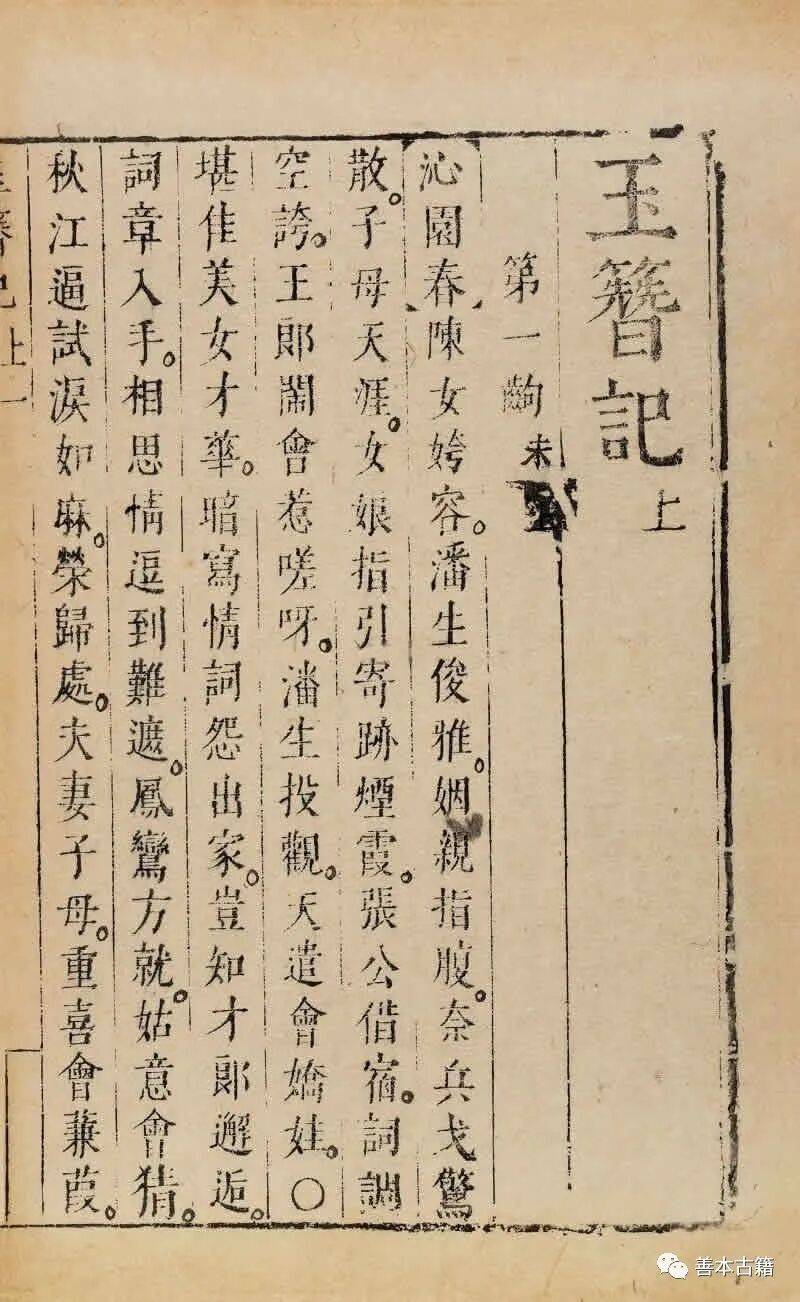 玉簪記
上
第一齣 末
沁園春陳女姱容。潘生俊雅。姻親指腹。奈兵戈驚
散。子母天涯。女娘指引寄跡煙霞。張公借宿。詞調
空誇。王郎鬧會惹嗟呀。潘生投觀。天遣會嬌娃。○
堪佳美女才華。暗寫情詞怨出家。豈知才郎邂逅。
詞章入手。相思情逗到難遮。鳳鸞方就。姑意會猜。
秋江逼試淚如麻。榮歸處。夫妻子母。重喜會蒹葭。
玉簪記上 一
善本古籍